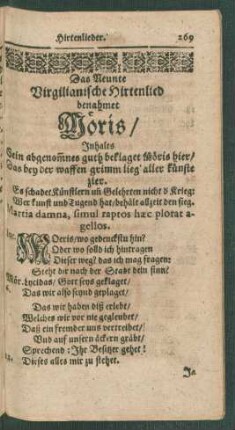 Hirtenlieder. 269
Das Neunte
Virgilianische Hirtenlied
benahmet
Möris/
Inhalts
Sein abgenom̃nes guth beklaget Möris hier/
Das bey der waffen grimm lieg' aller künste
zier.
Es schadet Künstlern uñ Gelehrten nicht d Krieg:
Wer kunst und Tugend hat/ behält allzeit den sieg.
Martia damna, simul raptos hæc plorat a-
gellos.
Moeris/ wo gedenckstu hin?
Oder wo sollo ich hintragen
Dieser weg? das ich mag fragen;
Steht dir nach der Stadt dein sinn/
Mör. Lycidas/ Gott seys geklaget/
Das wir also seynd geplaget/
Das wir haben diß erlebt/
Welches wir vor nie geglenbet/
Daß ein fremder uns vertreibet/
Und auf unsern äckern gräbt/
Sprechend: Ihr Besitzer gehet!
Dieses alles mir zu stehet.